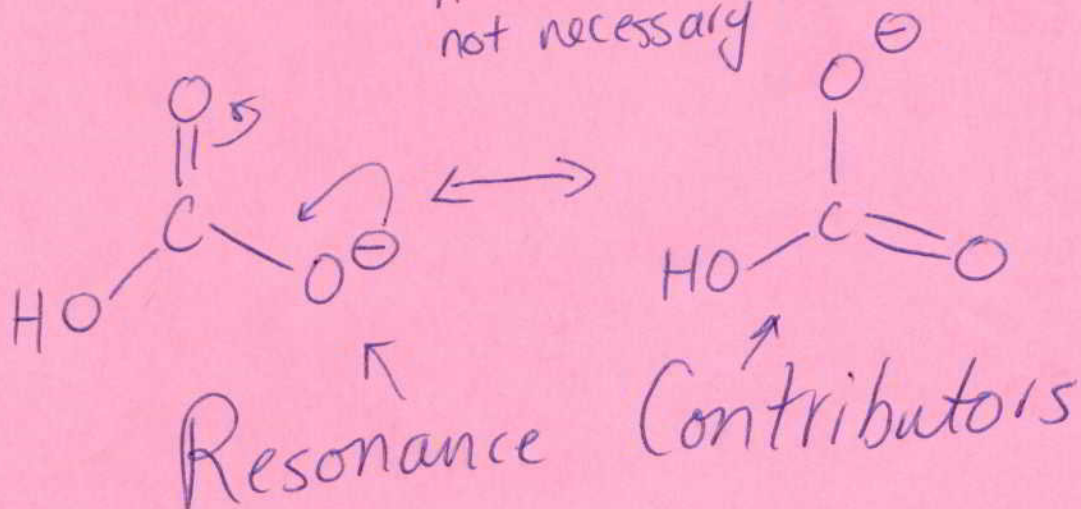 not necessary
O O ⊖
C C
HO O ⊖ HO O
Resonance Contributors